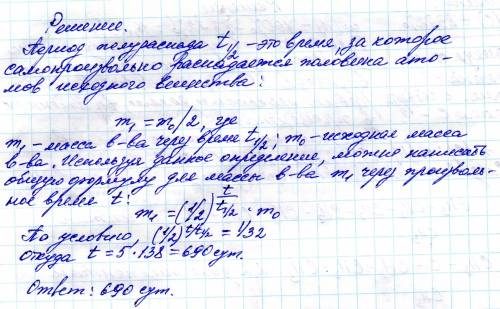 Решение.
Период полураспада t1/2 - это время, за которое
самопроизвольно распадается половина ато-
мов исходного вещества:
m1 = m0/2, где
m1 - масса в-ва через время t1/2; m0 - исходная масса
в-ва. Используя данное определение, можно написать
общую формулу для массы в-ва m1 через произволь-
ное время t:
m1 = (1/2)^(t/t1/2) · m0
По условию, (1/2)^(t/t1/2) = 1/32
откуда t = 5·138 = 690 сут.
Ответ: 690 сут.